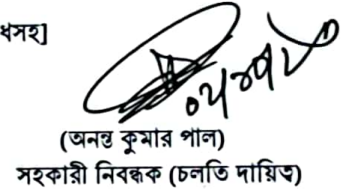 ধসহ]
(অনন্ত কুমার পাল)
সহকারী নিবন্ধক (চলতি দায়িত্ব)